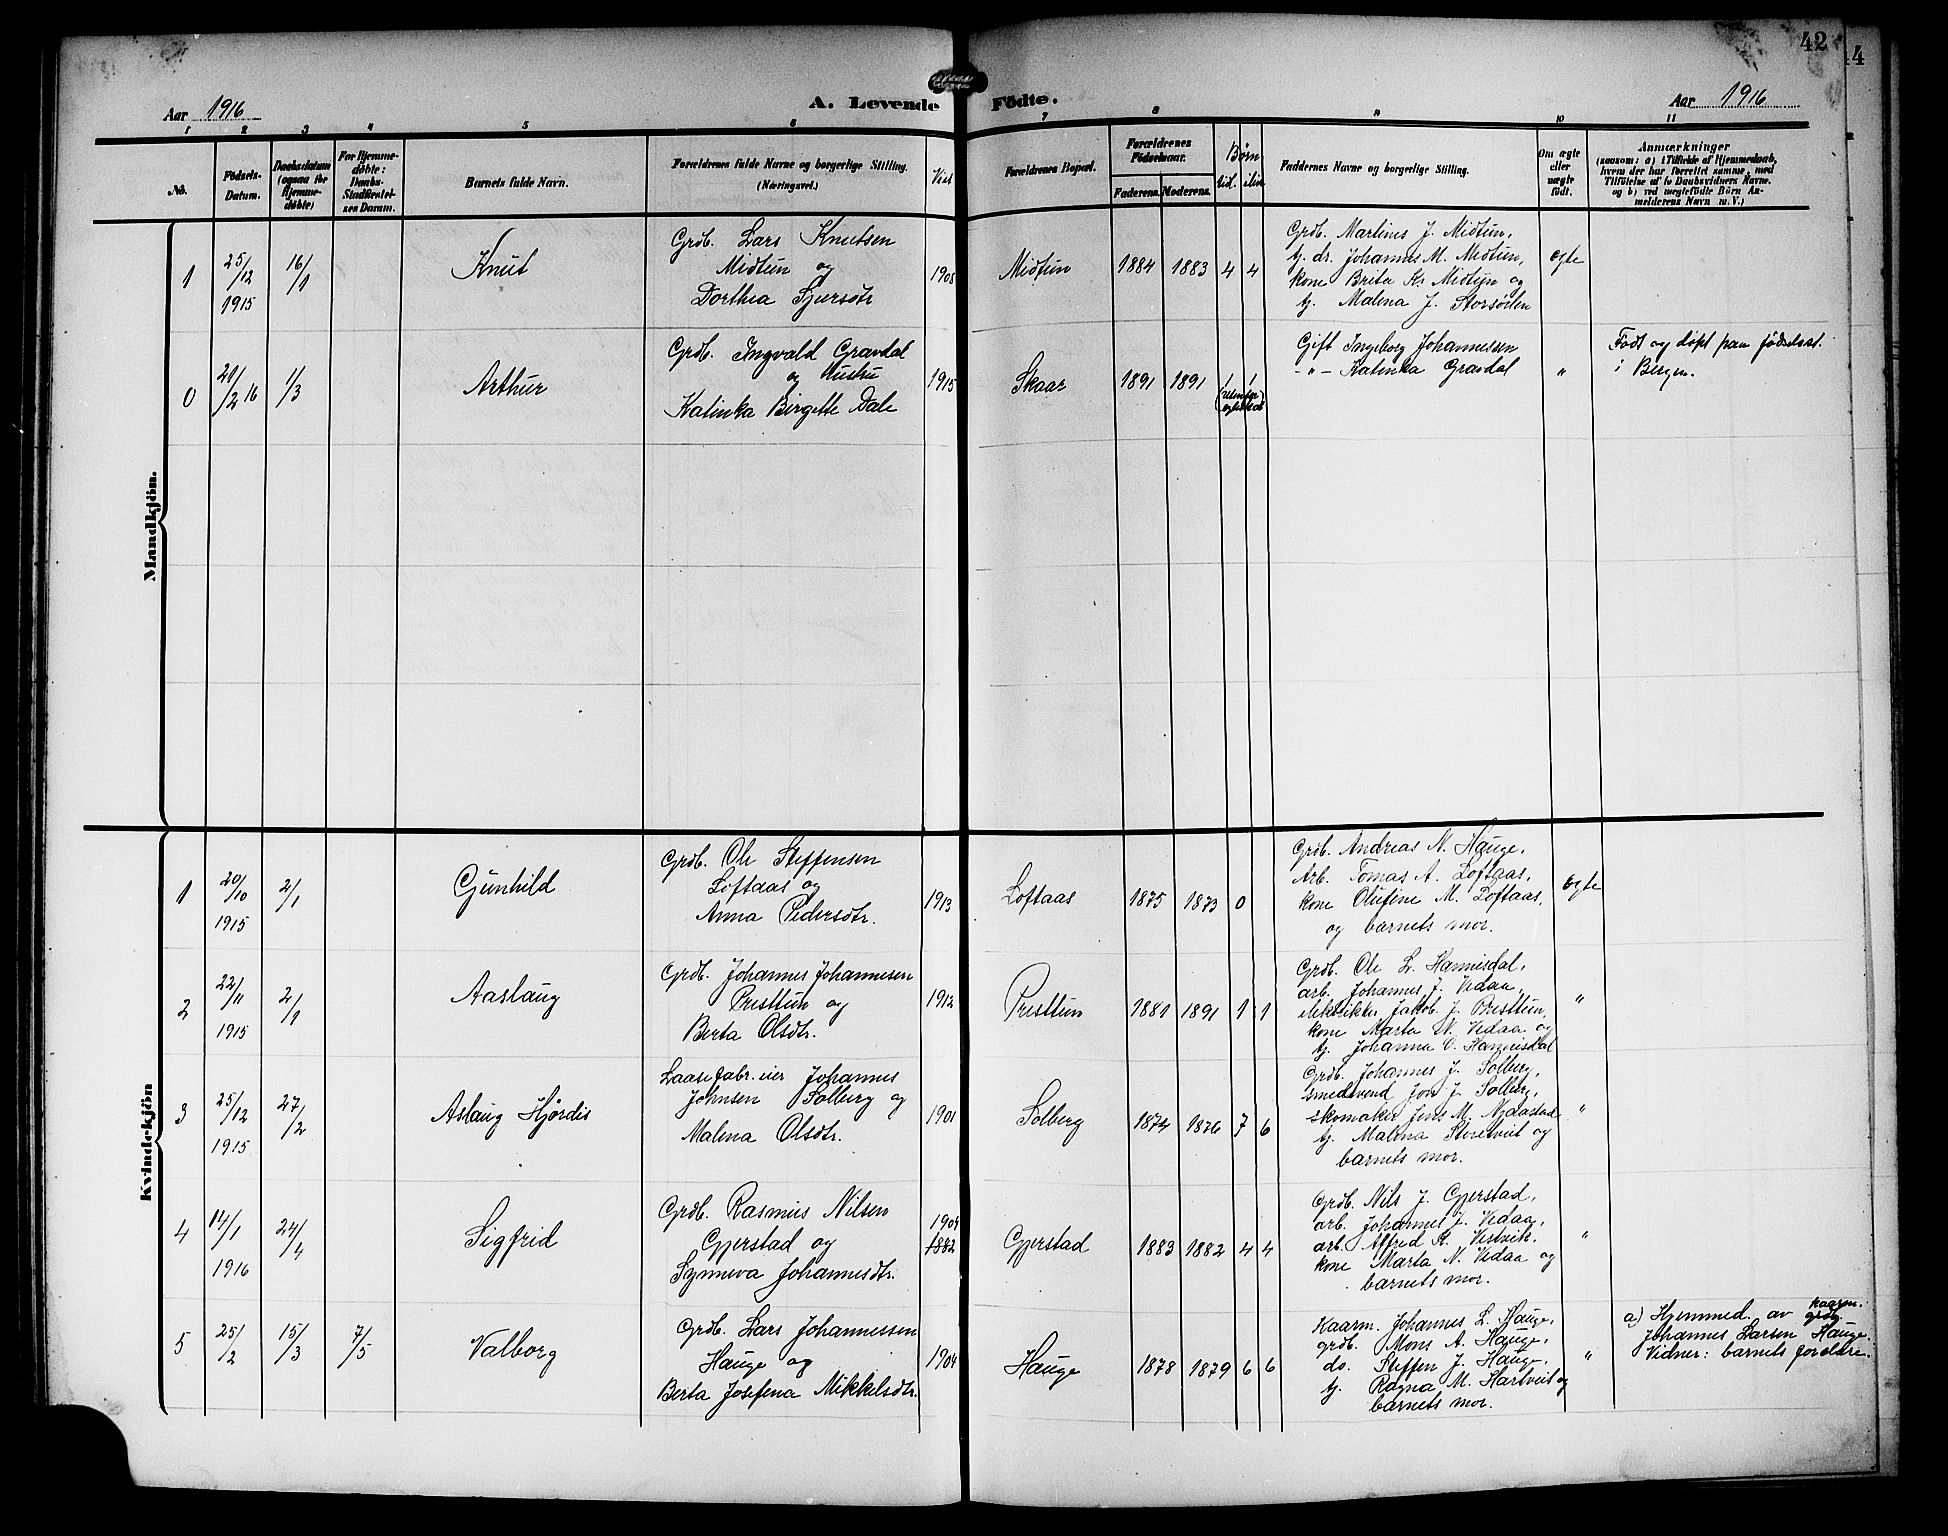 42
44
Aar 1916
A. Levende
Födte.
Aar 1916
1 2 3 4 5 6 7 8 9 10 11
No.
Födsels-Datum.
Daabsdatum (ogsaa for Hjemmedöbte)
For Hjemmedöbte: Daabs-Stadfæstelsens Datum.
Barnets fulde Navn.
Forældrenes fulde Navne og borgerlige Stilling.
(Næringsvei.)
Viet
Forældrenes Bopæl.
Forældrenes Födselsaar.
Faderens. Moderens.
Börn
tid. ilive
Faddernes Navne og borgerlige Stilling.
Om ægte eller uægte födt.
Anmærkninger
(saasom: a) i Tilfælde af Hjemmedaab, hvem der har forrettet samme, med Tilföielse af to Daabsvidners Navne, og b) ved uægtefödte Börn Anmelderens Navn m. V.)
Mandkjön.
1
25/12
1915
16/1
Knut
Grdb. Lars Knutsen
Midtun og
Dorthea Sjursdtr
1908
Midtun
1884
1883
4
4
Grdb. Martines J. Midtun,
tj. dr. Johannes M. Midtun,
kone Brita K. Midtun og
tj. Malena J. Storsøten
egte
0
21/2 16
1/3
Arthur
Grdb. Ingvald Gravdal
og Hustru
Katinka Birgitte Dale
1915
Skaar
1891
1891
1
1
Gift Ingeborg Johannessen
-"- Katinka Gravdal
"
Født og døpt paa fødselsst.
i Bergen.
Kvindekjön
1
20/10
1915
2/1
Gunhild
Grdb. Ole Steffensen
Loftaas og
Anna Pedersdtr.
1913
Loftaas
1875
1873
0
Grdb. Andreas N. Hauge,
Arb. Tomas A. Loftaas,
kone Olufine M. Loftaas,
og barnets mor.
Egte
2
22/11
1915
2/1
Aaslaug
Grdb. Johannes Johannesen
Presttun og
Berta Olsdtr.
1912
Presttun
1881
1891
1
1
Grdb. Ole L. Hannisdal,
arb. Johannes J. Vedaa,
elektriker Jakob J. Presttun,
kone Marta N. Vedaa og
tj. Johanna O. Hannisdal
"
3
25/12
1915
27/2
Aslaug Hjørdis
Laasefabr.eier Johannes
Johnsen Solberg og
Malena Olsdtr.
1901
Solberg
1874
1876
7
6
Grdb. Johannes J. Solberg,
smedsvend Jon J. Solberg,
skomaker Jens M. Nydastad,
tj. Malena Storetveit og
barnets mor.
"
4
14/1
1916
24/4
Sigfrid
Grdb. Rasmus Nilsen
Gjerstad og
Synneva Johannesdtr.
1904
1882
Gjerstad
1883
1882
4
4
Grdb. Nils J. Gjerstad,
arb. Johannes J. Vedaa,
arb. Alfred K. Vestvik,
kone Marta N. Vedaa og
barnets mor.
"
5
25/2
15/3
7/5
Valborg
Grdb. Lars Johannessen
Hauge og
Berta Josefena Mikkelsdtr.
1904
Hauge
1878
1879
6
6
Kaarm. Johannes L. Hauge,
grdb. Mons A. Hauge,
do. Steffen J. Hauge,
tj. Ragna M. Hartveit og
barnets mor.
"
a) Hjemmed. av kaarm. grdb.
Johannes Larsen Hauge.
Vidner: barnets foreldre.